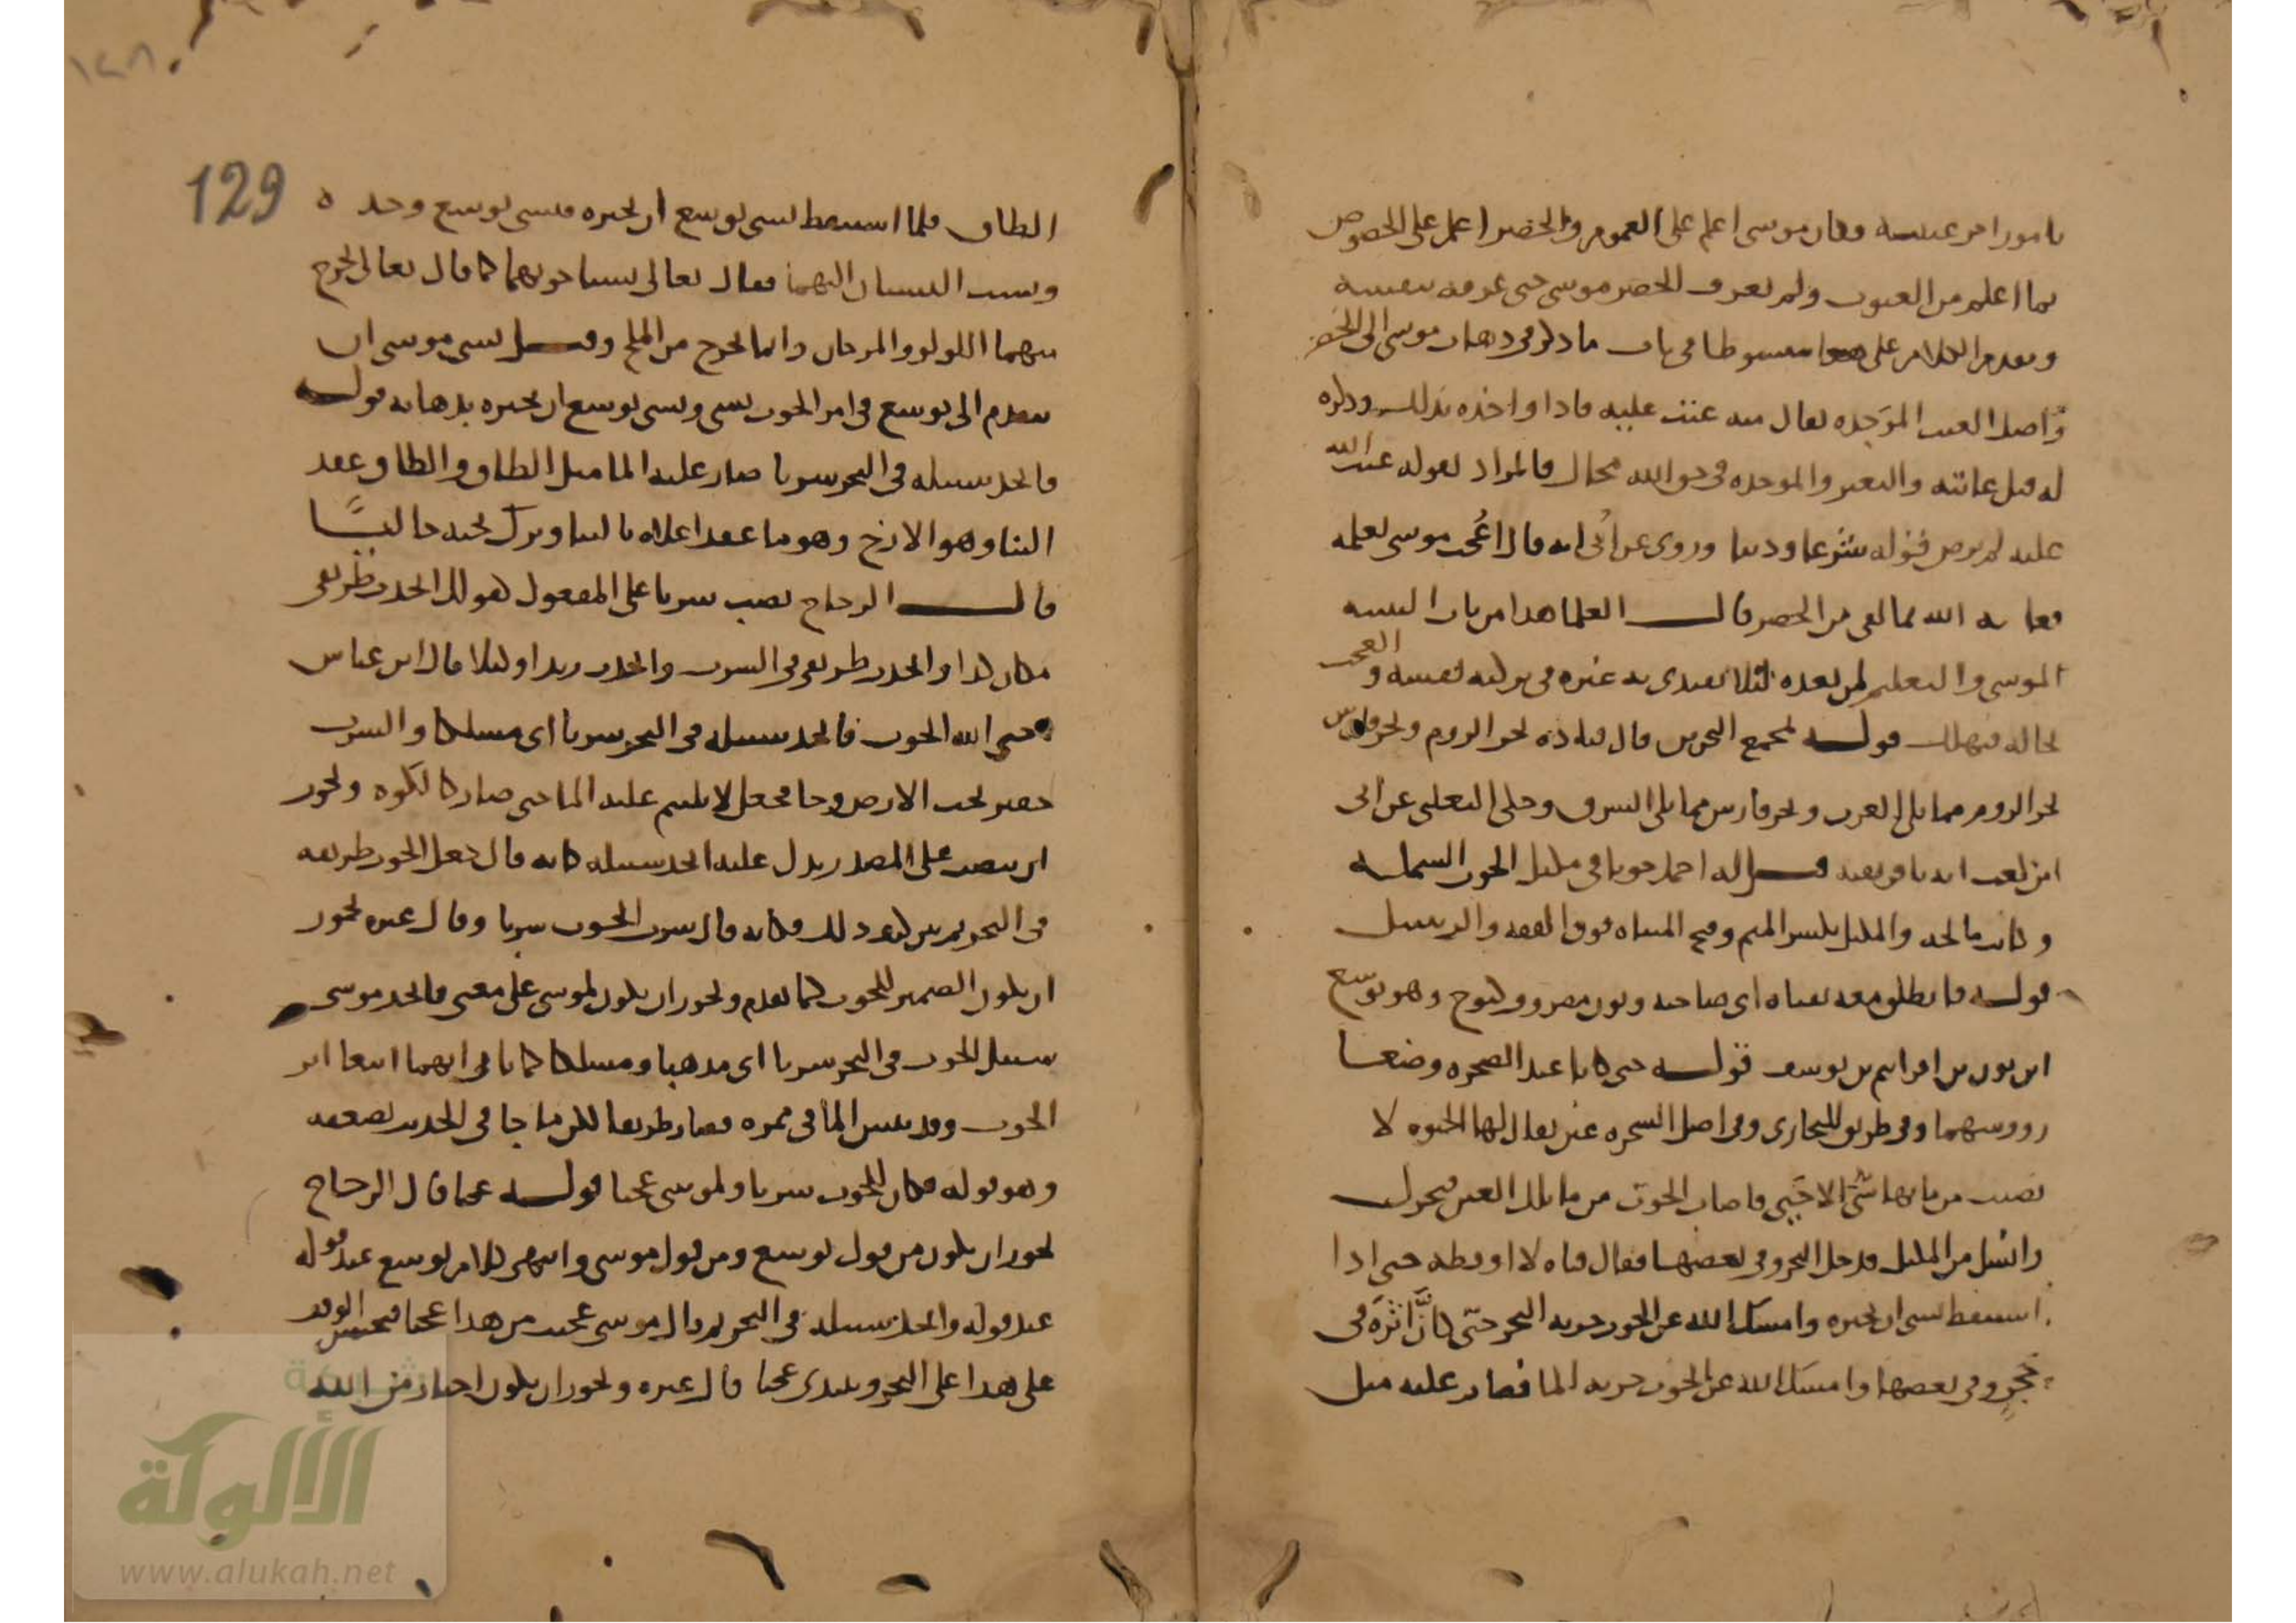 بامور امر غيبه وكان موسى اعلم على العموم والخضر اعلم على الخصوص
بما اعلم من الغيوب ولم يعرف الخضر موسى حتى عرفه بنفسه
وتقدم الكلام على هذا مبسوطا في باب ما ذكر في ذهاب موسى الى الخضر
واصل العتب الموجدة يقال منه عتب عليه فاذا واخذه بذلك وذكره
له قيل عاتبه والتغير والموجدة في حق الله محال فالمراد بقوله عتب الله
عليه لم يرض قوله شرعا ودينا وروى عن ابي انه قال اعجب موسى بعلمه
فعاتبه الله بما لقي من الخضر قال العلما هذا من باب التنبيه
لموسى والتعليم لمن بعده لئلا يقتدي به غيره في تزكيه نفسه والعجب
بحاله فيهلك قوله بمجمع البحرين قال قتاده بحر الروم وبحر فارس
بحر الروم مما يلي الغرب وبحر فارس مما يلي الشرق وحكى الثعلبي عن ابي
ابن كعب انه بافريقيه قيل له احمل حوتا في مكتل الحوت السمكه
وكانت مالحه والمكتل بكسر الميم وفتح المثناه فوق القفه والزنبيل
قوله فانطلق معه بفتاه اى صاحبه ونون مصروف كنوح وهو يوشع
ابن نون بن افراثيم بن يوسف قوله حتى كانا عند الصخره وضعا
رووسهما وفي طريق للبخاري وفي اصل الشجره عين يقال لها الحيوه لا
يصيب من مائها شئ الا حيي فاصاب الحوت من ما تلك العين فتحرك
وانسل من المكتل فدخل البحر وفي بعضها فقال فتاه لا اوقظه حتى اذا
استيقظ نسى ان يخبره وامسك الله عن الحوت جريه البحر حتى كان اثره في
حجر وفي بعضها وامسك الله عن الحوت جريه الما فصار عليه مثل
129
الطاق فلما استيقظ نسى يوشع ان يخبره فنسى يوشع وحده
ونسب النسيان اليهما فقال تعالى نسيا حوتهما كما قال تعالى يخرج
منهما اللولو والمرجان وانما يخرج من الملح وقيل نسى موسى ان
يتقدم الى يوشع في امر الحوت بشى ونسى يوشع ان يخبره بذهابه قوله
فاتخذ سبيله في البحر سربا صار عليه الما مثل الطاق والطاق عقد
البنا وهو الازج وهو ما عقد اعلاه بالبنا وترك تحته خاليا
قال الزجاج نصب سربا على المفعول كقولك اتخذت طريقي
مكان كذا واتخذت طريقي في السرب واتخذت زيدا وكيلا قال ابن عباس
حيي الله الحوت فاتخذ سبيله في البحر سربا اى مسلكا والسرب
حفير تحت الارض وجا فجعل لا يلتيم عليه الما حتى صار كالكوه ويجوز
ان ينصب على المصدر يدل عليه اتخذ سبيله كانه قال جعل الحوت طريقه
في البحر ثم بين كيف ذلك فكانه قال سرب الحوت سربا وقال غيره يجوز
ان يكون الضمير للحوت كما تقدم ويجوز ان يكون لموسى على معنى فاتخذ موسى
سبيل الحوت في البحر سربا اى مذهبا ومسلكا كما انهما اتبعا اثر
الحوت وقد يبس الما في ممره فصار طريقا لكن ما جا في الحديث يضعفه
وهو قوله فكان للحوت سربا ولموسى عجبا قوله عجبا قال الزجاج
يجوز ان يكون من قول يوشع ومن قول موسى وانتهى كلام يوشع عند قوله
عند قوله واتخذ سبيله في البحر ثم قال موسى عجبت من هذا عجبا فيحسن الوقف
على هذا على البحر ويبتدى عجبا قال غيره ويجوز ان يكون اخبارا من الله
الألوكة
www.alukah.net